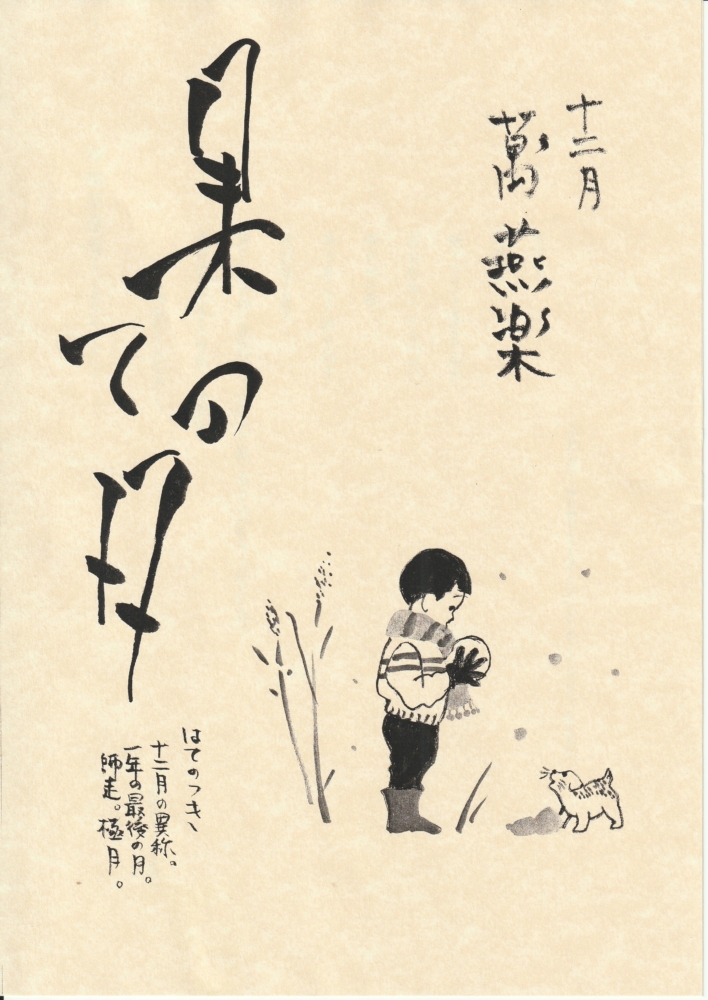 十二月
萬燕楽
果ての月
はてのつき、
十二月の異称。
一年の最後の月。
師走。極月。